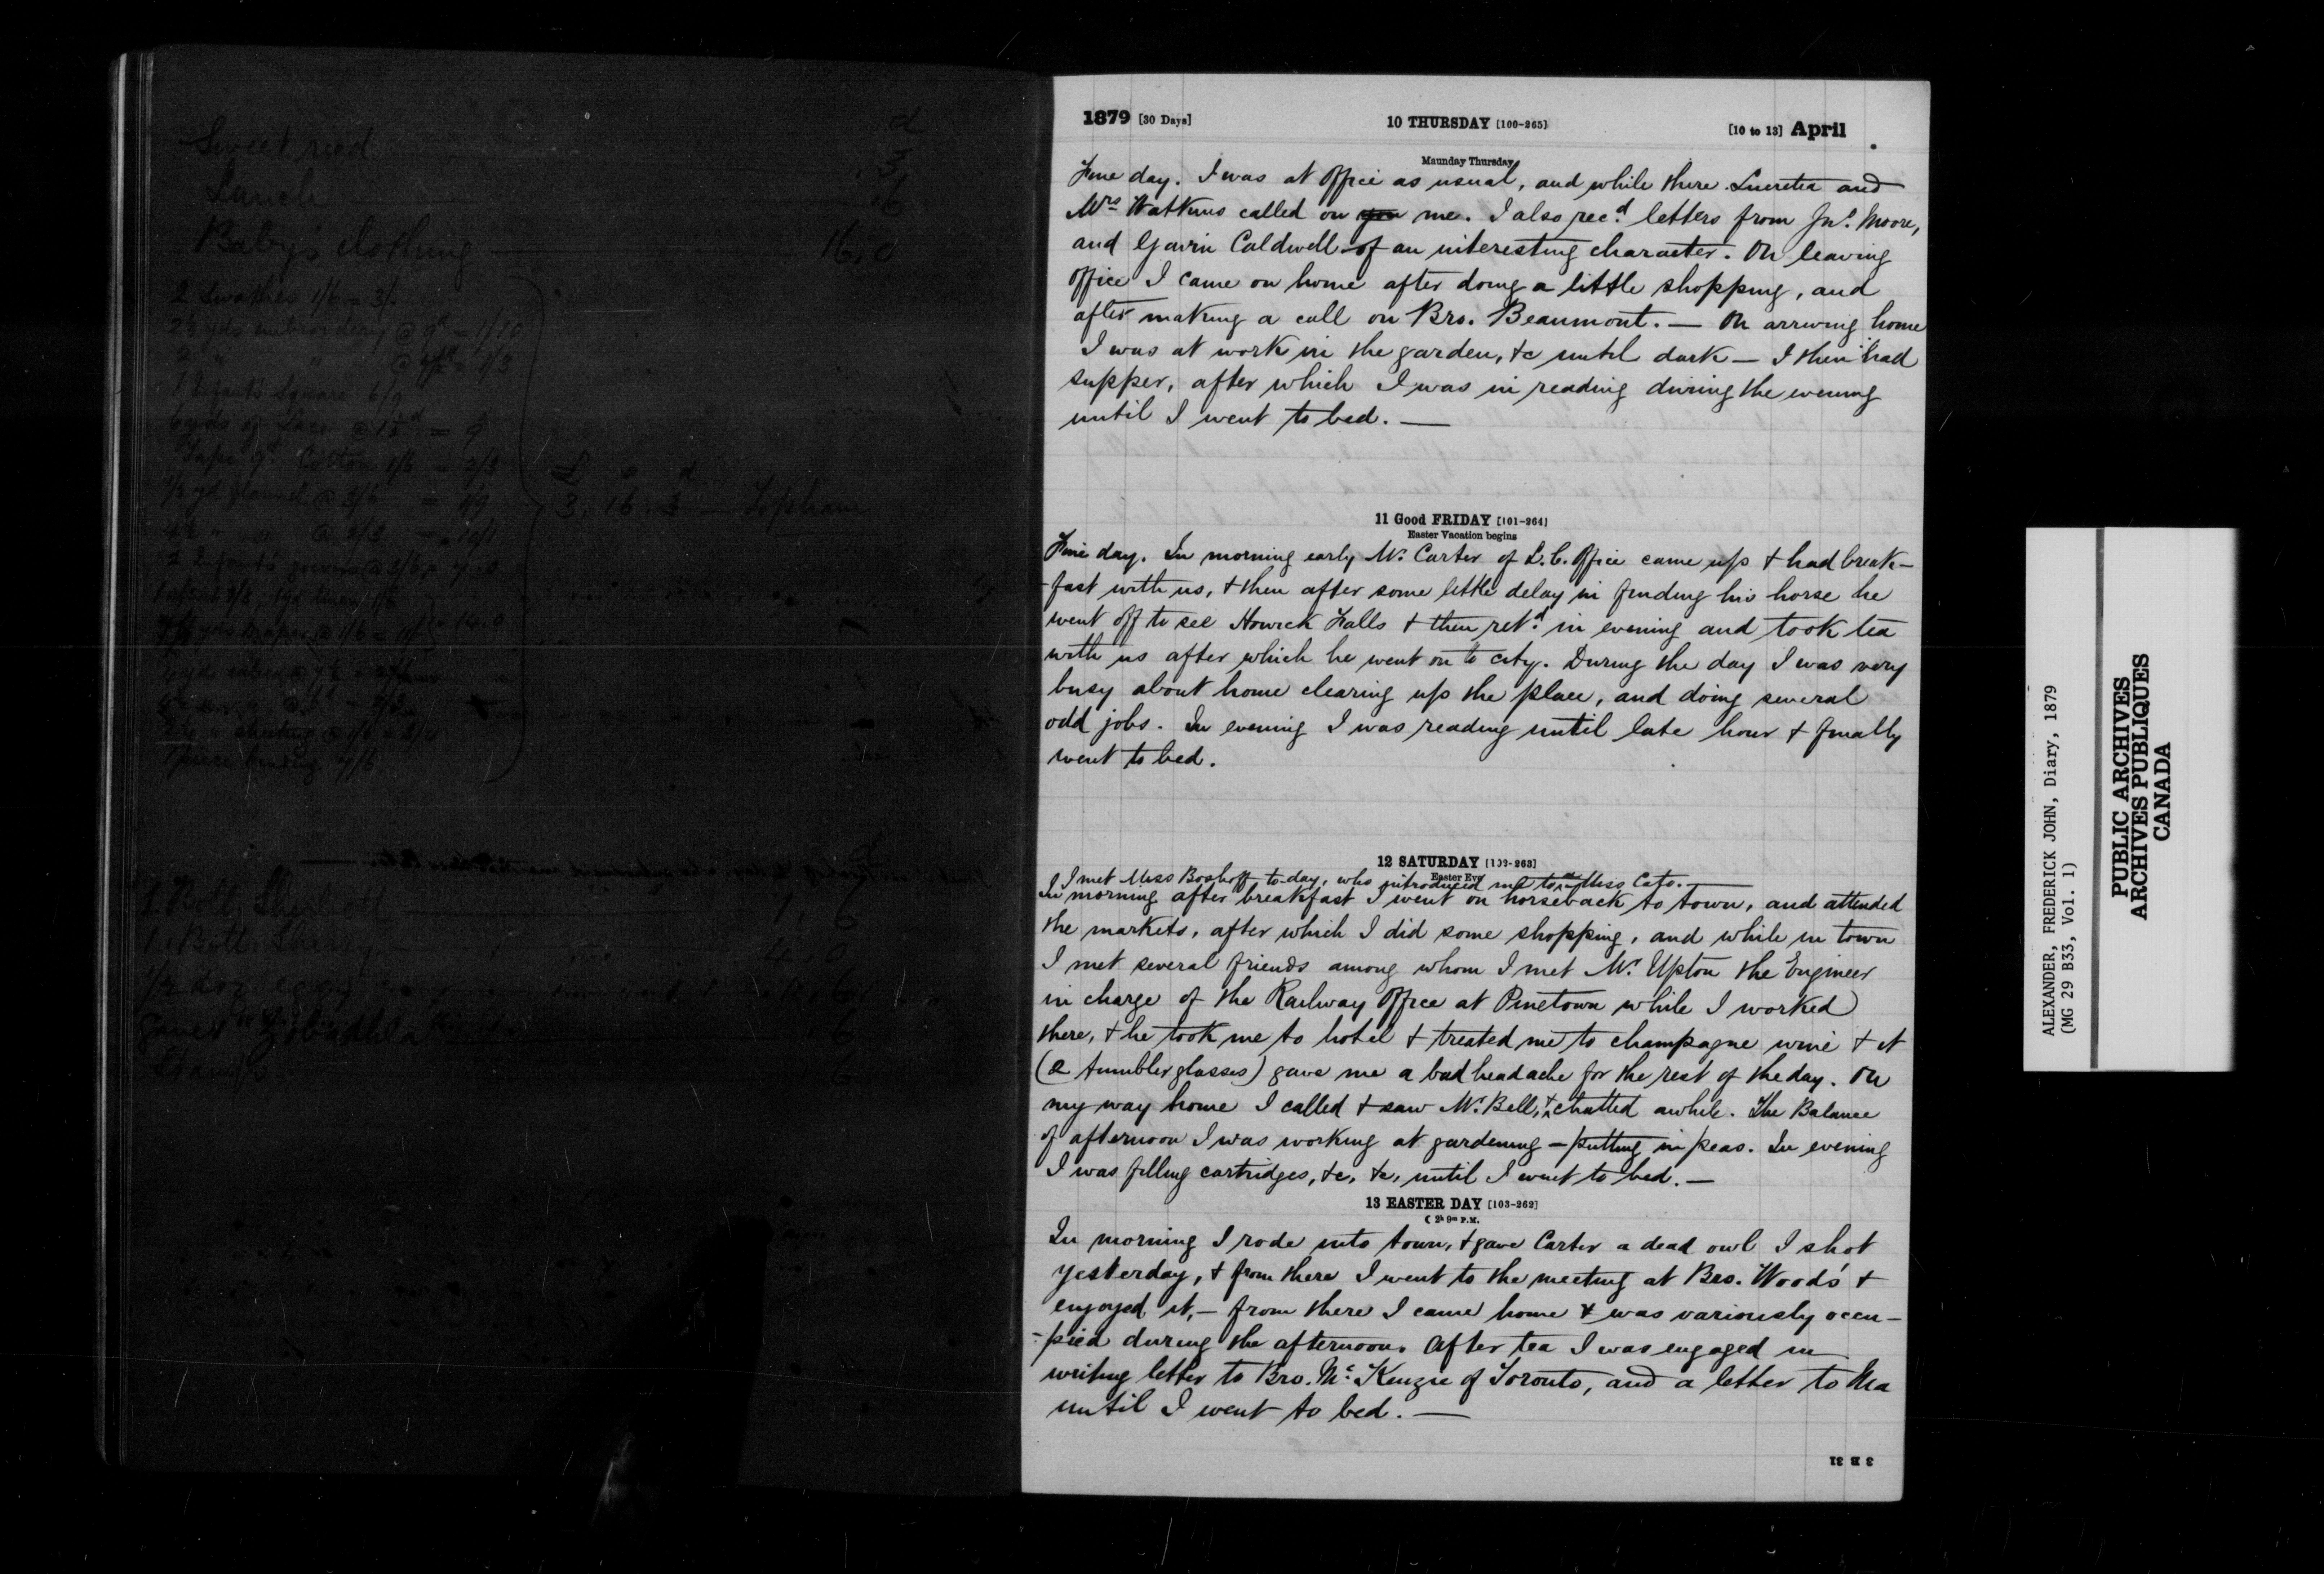 d
Sweet reed .3
Lunch .6
Baby's clothing 16.0
2 Swathes 1/6 = 3/-
2½ yds embroidery @ 9d = 1/10
2 " " @ = 1/3
1 Infant's Square 6/9
6 yds of Lace @ 1½d = 9
Tape 9d. Cotton 1/6 = 2/3
½ yd flannel @ 3/6 = 1/9
@ 2/3 = 10/1
2 Infant's gowns @ 3/6 = 7.0
yds Diaper @ 1/6 = 14.0
£ s d
3. 16. 3 Topham
" sheeting @ 1/6 =
1 piece binding
1 Bott. 1. 6
1. Bott. 4. 0
½ doz eggs . 6
6
Stamps . 6
1879 [30 Days] 10 THURSDAY [100-265] [10 to 13] April
Maunday Thursday
Fine day. I was at Office as usual, and while there Lucretia and
Mrs Watkins called on you me. I also rec.d letters from Jno. Moore,
and Gavin Caldwell of an interesting character. On leaving
office I came on home after doing a little shopping, and
after making a call on Bro. Beaumont. — On arriving home
I was at work in the garden, &c until dark — I then had
supper, after which I was in reading during the evening
until I went to bed. —
11 Good FRIDAY [101-264]
Easter Vacation begins
Fine day. In morning early Mr. Carter of L. C. Office came up & had break-
-fast with us, & then after some little delay in finding his horse he
went off to see Howick Falls & then ret.d in evening and took tea
with us after which he went on to city. During the day I was very
busy about home clearing up the place, and doing several
odd jobs. In evening I was reading until late hour & finally
went to bed.
12 SATURDAY [102-263]
Easter Eve
I met Miss Boshoff to-day, who introduced me to a Miss Cato. —
In morning after breakfast I went on horseback to town, and attended
the markets, after which I did some shopping, and while in town
I met several friends among whom I met Mr. Upton the Engineer
in charge of the Railway Office at Pinetown while I worked
there, & he took me to hotel & treated me to champagne wine & it
(2 tumbler glasses) gave me a bad headache for the rest of the day. On
my way home I called & saw Mr. Bell, & chatted awhile. The Balance
of afternoon I was working at gardening — putting in peas. In evening
I was filling cartridges, &c, &c, until I went to bed. —
13 EASTER DAY [103-262]
☾ 2h 9m P.M.
In morning I rode into town, & gave Carter a dead owl I shot
yesterday, & from there I went to the meeting at Bro. Wood's &
enjoyed it, — from there I came home & was variously occu-
-pied during the afternoon. After tea I was engaged in
writing letter to Bro. McKenzie of Toronto, and a letter to Ma
until I went to bed. —
3 B 31
ALEXANDER, FREDERICK JOHN, Diary, 1879
(MG 29 B33, Vol. 1)
PUBLIC ARCHIVES
ARCHIVES PUBLIQUES
CANADA